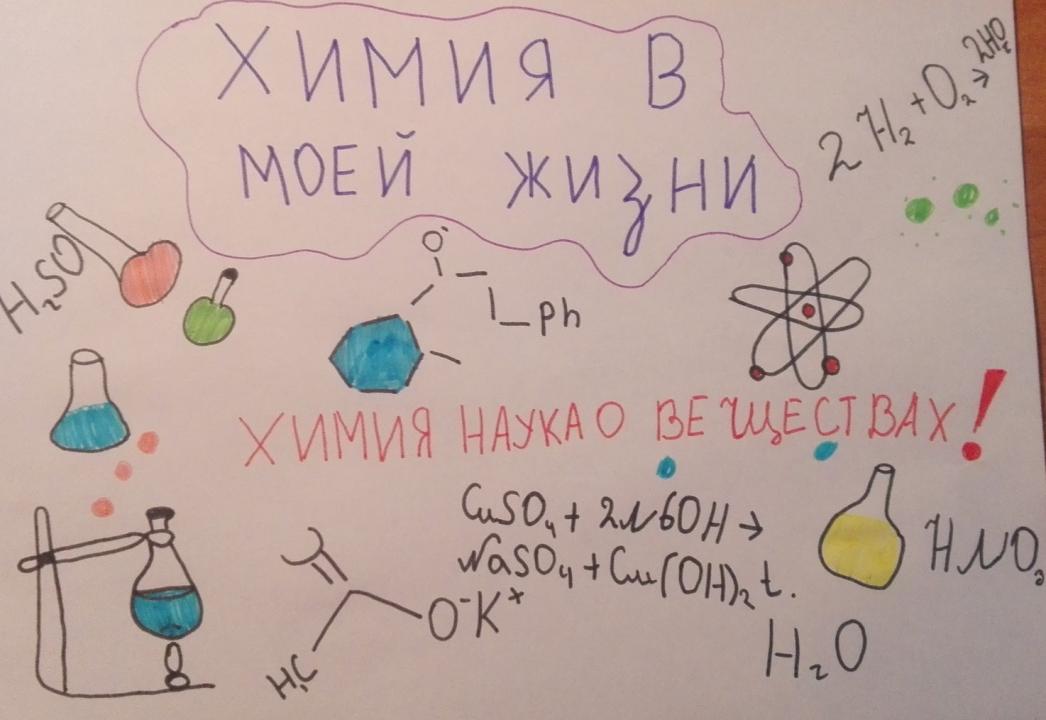 ХИМИЯ В
МОЕЙ ЖИЗНИ
2H₂+O₂→2H₂O
H₂SO
O
Ph
ХИМИЯ НАУКА О ВЕЩЕСТВАХ!
CuSO₄+2NбOH→
NaSO₄+Cu(OH)₂ t.
HNO₃
O⁻K⁺
H₃C
H₂O